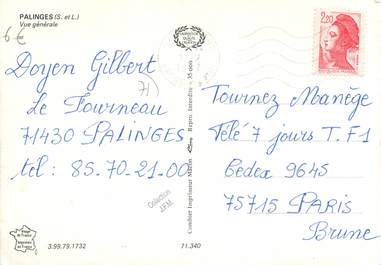 PALINGES (S. et L.)
Vue générale
6€
Doyen Gilbert
71)
Le Fourneau
71430 PALINGES
tél : 85.70.21.00
Collection
J.F.M.
3.99.79.1732
71.340
Combier Imprimeur Mâcon
Repro. Interdite - 35-006
2,20
Tournez Manège
Télé 7 jours T.F1
Cedex 9645
75715 PARIS
Brune